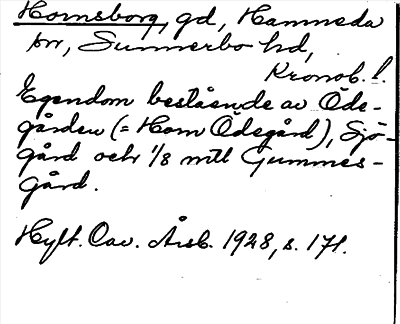 Hornsborg, gd, Hamneda
sn, Sunnerbo hd,
Kronob. l.
Egendom bestående av Öde-
gården (= Horn Ödegård), Sjö-
gård och 1/8 mtl Gummes-
gård.
Hylt. Cav. Årsb. 1928, s. 171.